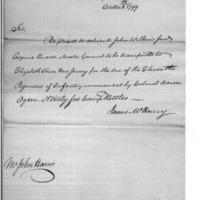 October 5th 1799
Sir,
Be pleased to deliver to John Wilkins Junr
Esquire Quarter Master General to be transported to
Elizabeth Town New Jersey for the use of the Eleventh
Regiment of Infantry commanded by Colonel Aaron
Ogden Ninety four Camp Kettles
James McHenry
Mr John Harris